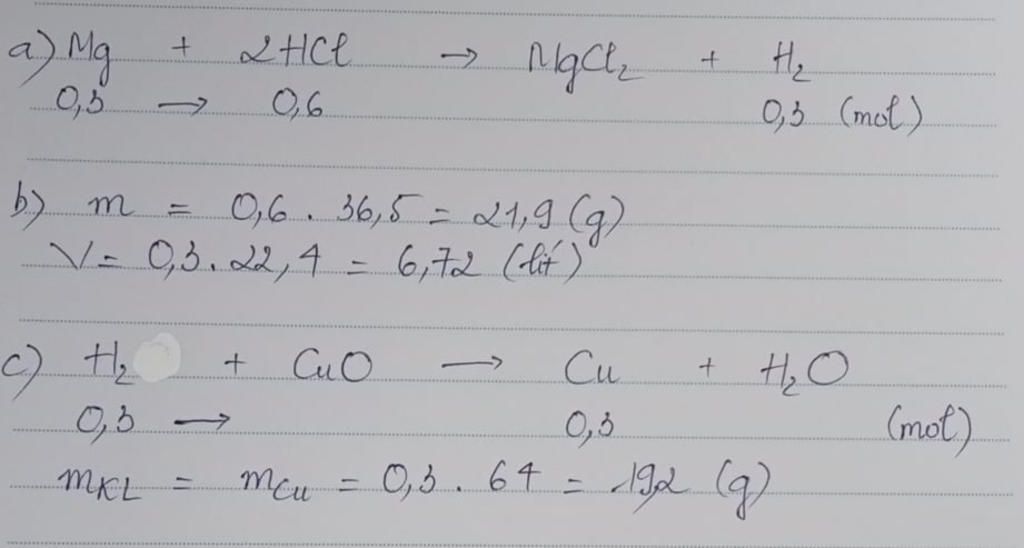 a) Mg + 2HCl → MgCl₂ + H₂
0,3 → 0,6 0,3 (mol)
b) m = 0,6 . 36,5 = 21,9 (g)
V = 0,3 . 22,4 = 6,72 (lít)
c) H₂ + CuO → Cu + H₂O
0,3 → 0,3 (mol)
mKL = mCu = 0,3 . 64 = 19,2 (g)